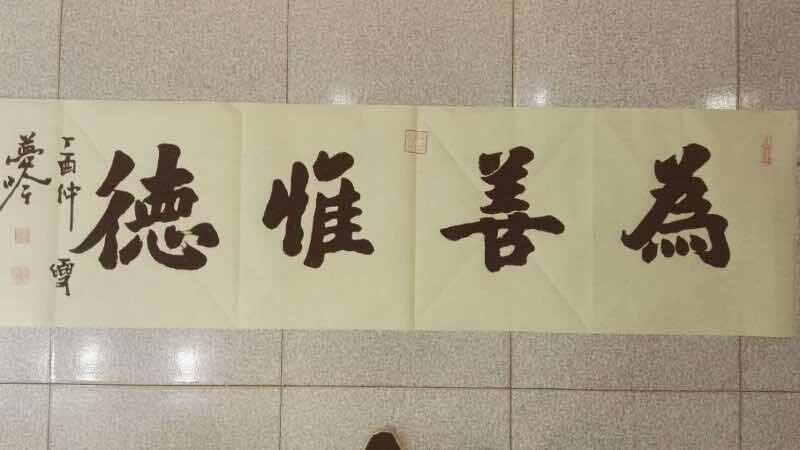 為善惟德
丁酉仲夏